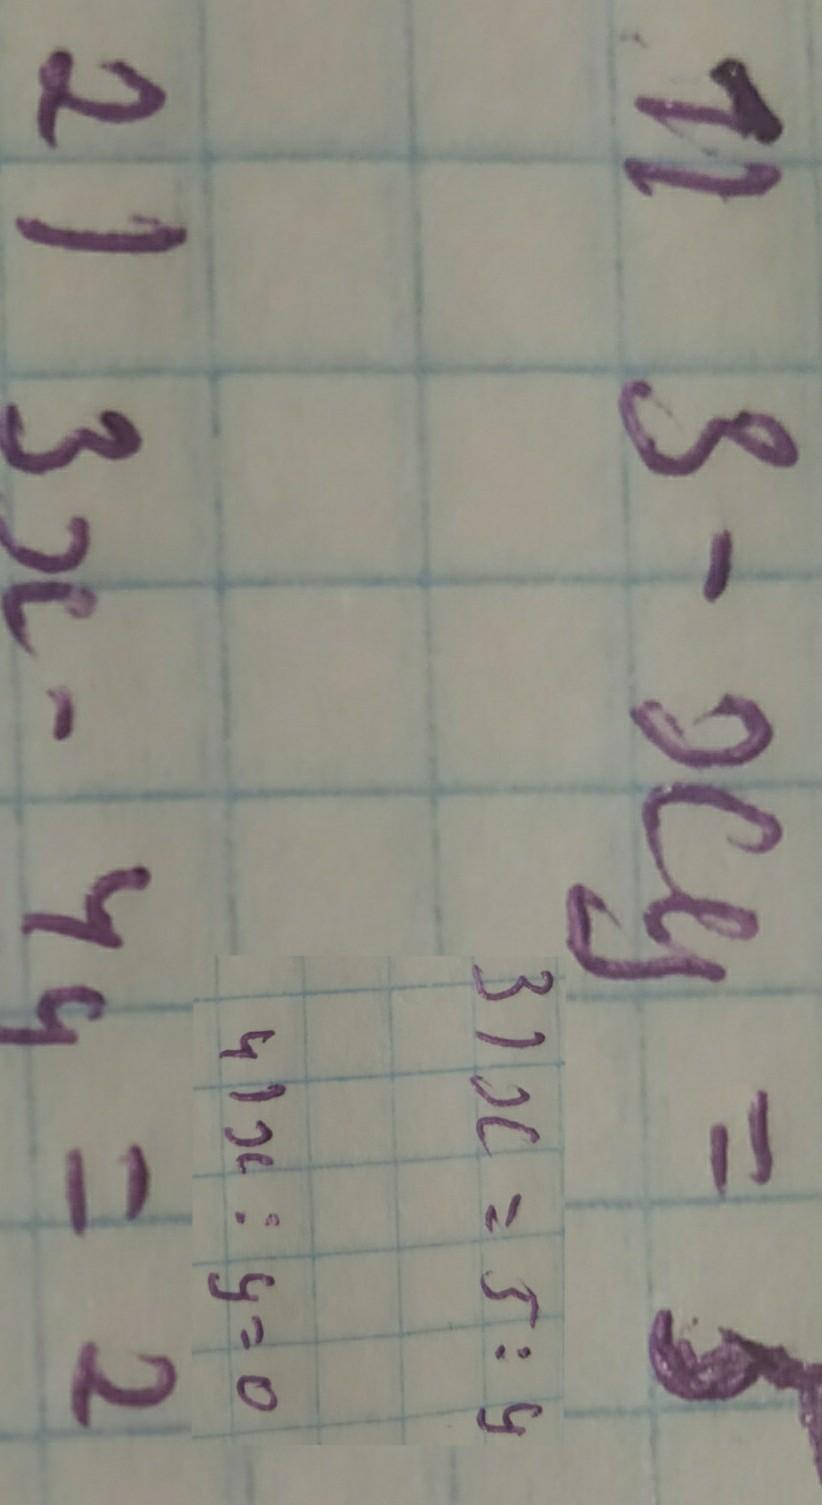 1) 9 - xy = 5
2) 3x - 4y = 2
3) x = 5 : y
4) x : y = 0